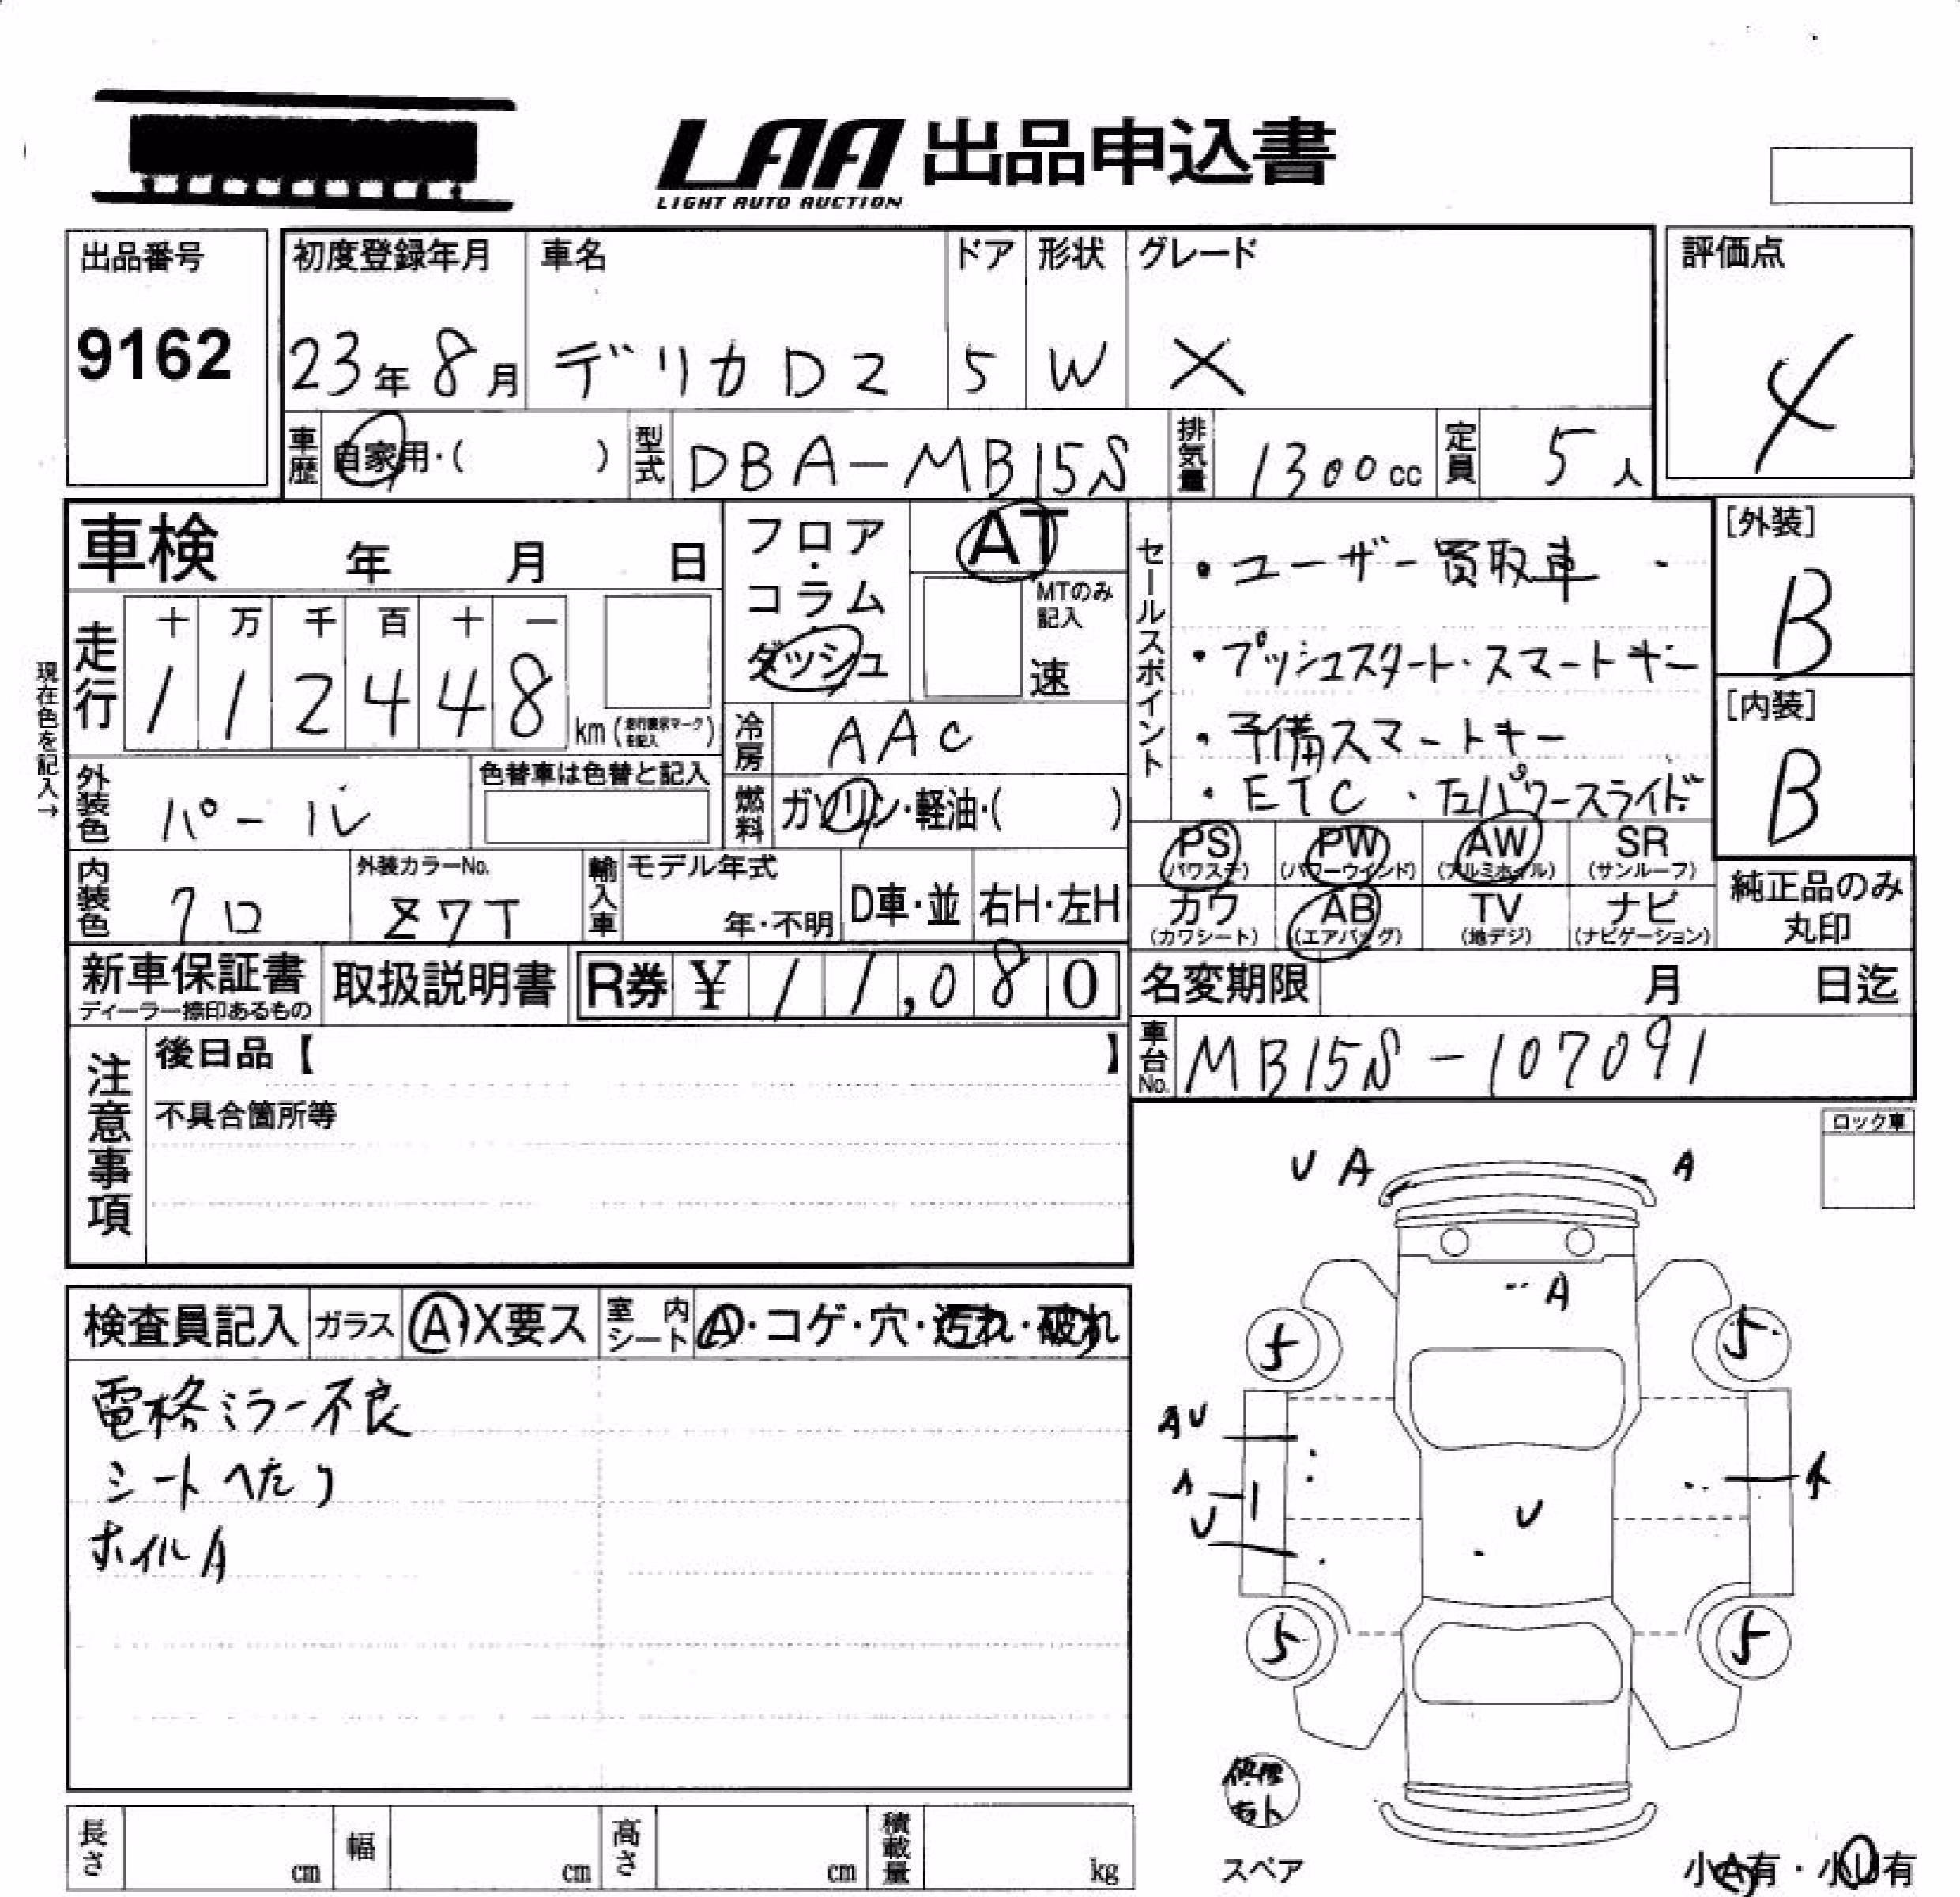 LAA 出品申込書
LIGHT AUTO AUCTION
出品番号 初度登録年月 車名 ドア 形状 グレード 評価点
9162 23年8月 デリカD2 5 W X 4
車歴 自家用・( ) 型式 DBA-MB15S 排気量 1300cc 定員 5人
車検 年 月 日 フロア・コラム ダッシュ AT
MTのみ記入 速
セールスポイント
・ユーザー買取車
・プッシュスタート・スマートキー
・予備スマートキー
・ETC ・左パワースライド
[外装] B
[内装] B
現在色を記入→
走行 十 万 千 百 十 一
1 1 2 4 4 8 km (走行表示マークを記入)
冷房 AAC
外装色 パール 色替車は色替と記入
燃料 ガソリン・軽油・( )
PS (パワステ) PW (パワーウインド) AW (アルミホイル) SR (サンルーフ)
カワ (カワシート) AB (エアバッグ) TV (地デジ) ナビ (ナビゲーション)
純正品のみ丸印
内装色 クロ 外装カラーNo. Z7T 輸入車 モデル年式 年・不明 D車・並 右H・左H
新車保証書 ディーラー捺印あるもの 取扱説明書 R券 ¥ 11,080 名変期限 月 日迄
車台No. MB15S-107091
注意事項 後日品【 】
不具合箇所等
ロック車
U A A
A
検査員記入 ガラス A・X要ス 室内シート A・コゲ・穴・汚れ・破れ
5 5
電格ミラー不良
シートへたり
ホイルA
A U
A
U
U
5 5
スペア
小A有・小U有
長さ cm 幅 cm 高さ cm 積載量 kg